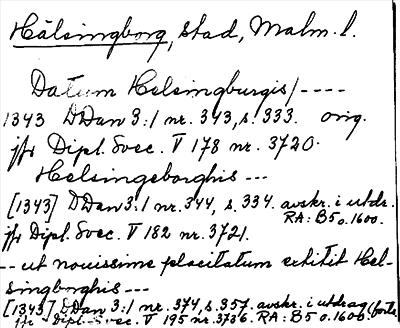 Hälsingborg, stad, Malm. l.
Datum Helsingburgis/----
1343 DDan 3:1 nr. 343, s. 333. orig.
jfr Dipl. Svec. V 178 nr. 3720.
Helsingeborghis ---
[1343] DDan 3:1 nr. 344, s. 334. avskr. i utdr.
RA: B5 o. 1600.
jfr Dipl. Svec. V 182 nr. 3721.
-- ut nouissime placitatum extitit Hel-
singborghis ---
[1343] DDan 3:1 nr. 374, s. 357. avskr. i utdrag (forts.
jfr Dipl. Svec. V 195 nr. 3736. RA: B5 o. 1600